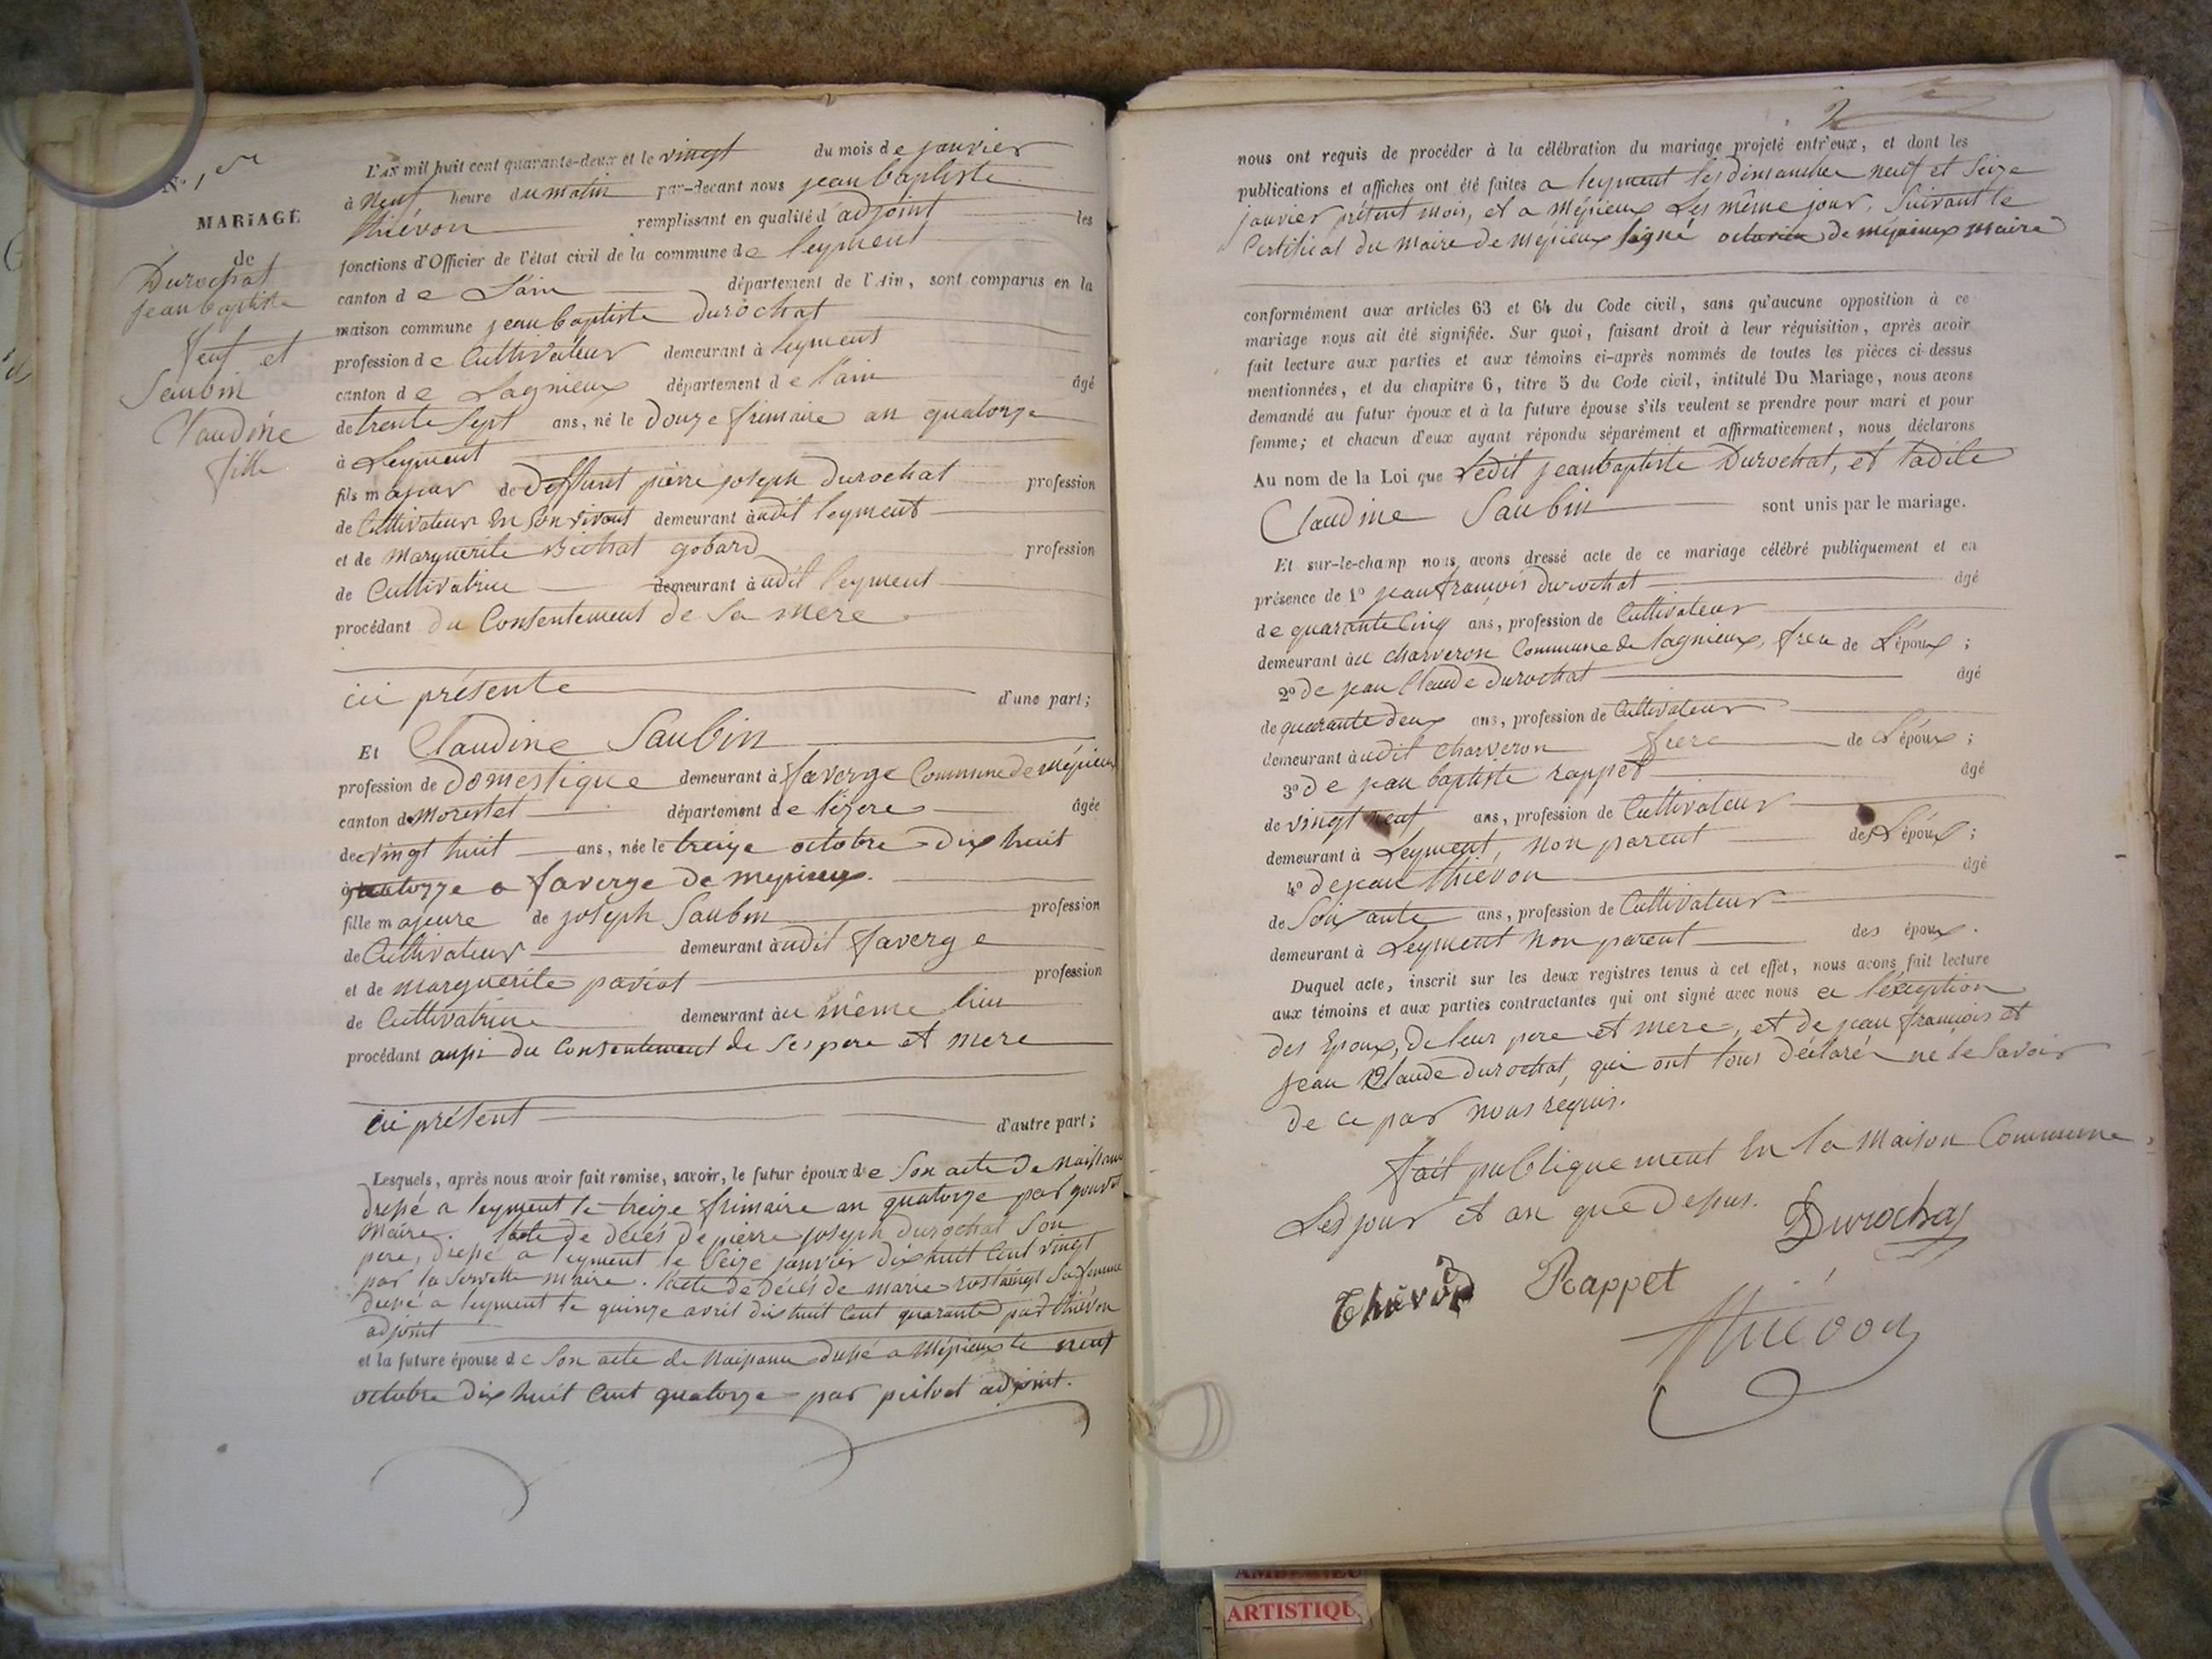 N° 1er
MARIAGE
de
Durochat
jean baptiste
Veuf et
Saubin
Claudine
fille
L'AN mil huit cent quarante-deux et le vingt du mois de janvier
à neuf heure du matin par-devant nous jean baptiste
thiévon remplissant en qualité d'adjoint les
fonctions d'Officier de l'état civil de la commune de leyment
canton de L'ain département de l'Ain, sont comparus en la
maison commune jean baptiste durochat
profession de Cultivateur demeurant à leyment
canton de Lagnieux département de l'ain âgé
de trente Sept ans, né le douze frimaire an quatorze
à Leyment
fils majeur de deffunt pierre joseph durochat profession
de Cultivateur En Son vivant demeurant audit leyment
et de marguerite Bichat gobard profession
de Cultivatrice demeurant audit leyment
procédant du Consentement de Sa mere
ici présente d'une part;
Et Claudine Saubin
profession de domestique demeurant à faverge Commune de mépieux
canton de morestel département de l'izere âgée
de vingt huit ans, née le treize octobre dix huit
quatorze a faverge de mepieux.
fille majeure de joseph Saubin profession
de Cultivateur demeurant audit faverge
et de marguerite paviot profession
de Cultivatrice demeurant au même lieu
procédant aussi du Consentement de Ses pere et mere
ici présent d'autre part;
Lesquels, après nous avoir fait remise, savoir, le futur époux de Son acte de Naissance
dressé a leyment le treize frimaire an quatorze par
Maire. l'acte de décés de pierre joseph Durochat Son
pere, dressé a leyment le Seize janvier dix huit Cent vingt
par la Servette maire. l'acte de décés de marie rostaingt Sa femme
dressé a leyment le quinze avril dix huit Cent quarante par thiévon
adjoint
et la future épouse de Son acte de Naissance dressé a Mépieux le neuf
octobre dix huit Cent quatorze par adjoint.
2
nous ont requis de procéder à la célébration du mariage projeté entr'eux, et dont les
publications et affiches ont été faites a leyment les dimanches neuf et Seize
janvier présent mois, et a Mépieux Les même jour, Suivant le
Certificat du Maire de Mépieux Signé octavien de mépieux maire
conformément aux articles 63 et 64 du Code civil, sans qu'aucune opposition à ce
mariage nous ait été signifiée. Sur quoi, faisant droit à leur réquisition, après avoir
fait lecture aux parties et aux témoins ci-après nommés de toutes les pièces ci-dessus
mentionnées, et du chapitre 6, titre 5 du Code civil, intitulé Du Mariage, nous avons
demandé au futur époux et à la future épouse s'ils veulent se prendre pour mari et pour
femme; et chacun d'eux ayant répondu séparément et affirmativement, nous déclarons
Au nom de la Loi que Ledit jean baptiste Durochat, et ladite
Claudine Saubin sont unis par le mariage.
Et sur-le-champ nous avons dressé acte de ce mariage célébré publiquement et en
présence de 1° jean françois durochat âgé
de quarante Cinq ans, profession de Cultivateur
demeurant au charveron Commune de lagnieux, frere de L'époux;
2° de jean Claude durochat âgé
de quarante deux ans, profession de Cultivateur
demeurant audit charveron frere de L'époux;
3° de jean baptiste rappet âgé
de vingt neuf ans, profession de Cultivateur
demeurant à Leyment, non parent des époux;
4° de jean thiévon âgé
de Soixante ans, profession de Cultivateur
demeurant à Leyment non parent des époux.
Duquel acte, inscrit sur les deux registres tenus à cet effet, nous avons fait lecture
aux témoins et aux parties contractantes qui ont signé avec nous a l'éxception
des Epoux, de leur pere et mere, et de jean françois et
jean Claude durochat, qui ont tous déclaré ne le Savoir
de ce par nous requis.
fait publiquement En la Maison Commune,
Les jour et an que dessus. Durochat
Thiévon Rappet
thiévon
AMBERIEU
ARTISTIQU